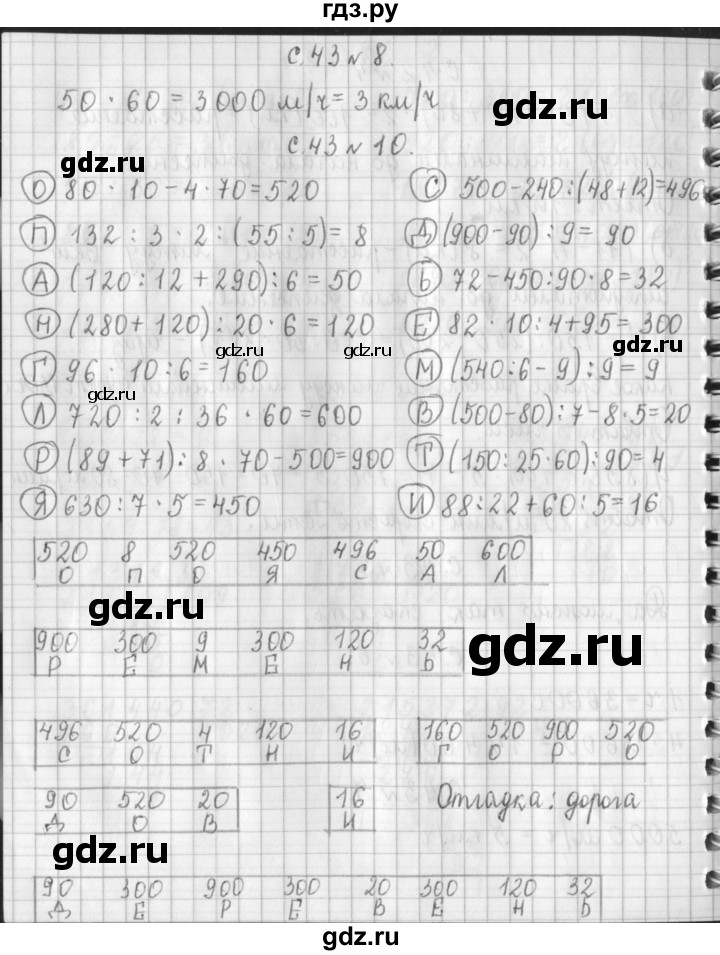 гдз.ру
с.43 № 8.
50 · 60 = 3000 м/ч = 3 км/ч
gdz.ru
с.43 № 10.
gdz.ru
О 80 · 10 - 4 · 70 = 520
С 500 - 240 : (48 + 12) = 496
П 132 : 3 · 2 : (55 : 5) = 8
Д (900 - 90) : 9 = 90
А (120 : 12 + 290) : 6 = 50
Ь 72 - 450 : 90 · 8 = 32
Н (280 + 120) : 20 · 6 = 120
Е 82 · 10 : 4 + 95 = 300
gdz.ru
gdz.ru
Г 96 · 10 : 6 = 160
М (540 : 6 - 9) : 9 = 9
gdz.ru
Л 720 : 2 : 36 · 60 = 600
В (500 - 80) : 7 - 8 · 5 = 20
Р (89 + 71) : 8 · 70 - 500 = 900
Т (150 : 25 · 60) : 90 = 4
Я 630 : 7 · 5 = 450
И 88 : 22 + 60 : 5 = 16
520 8 520 450 496 50 600
О П О Я С А Л
gdz.ru
gdz.ru
900 300 9 300 120 32
Р Е М Е Н Ь
496 520 4 120 16
С О Т Н И
160 520 900 520
Г О Р О
90 520 20
Д О В
16
И
Отгадка: дорога
gdz.ru
90 300 900 300 20 300 120 32
Д Е Р Е В Е Н Ь
gdz.ru
gdz.ru